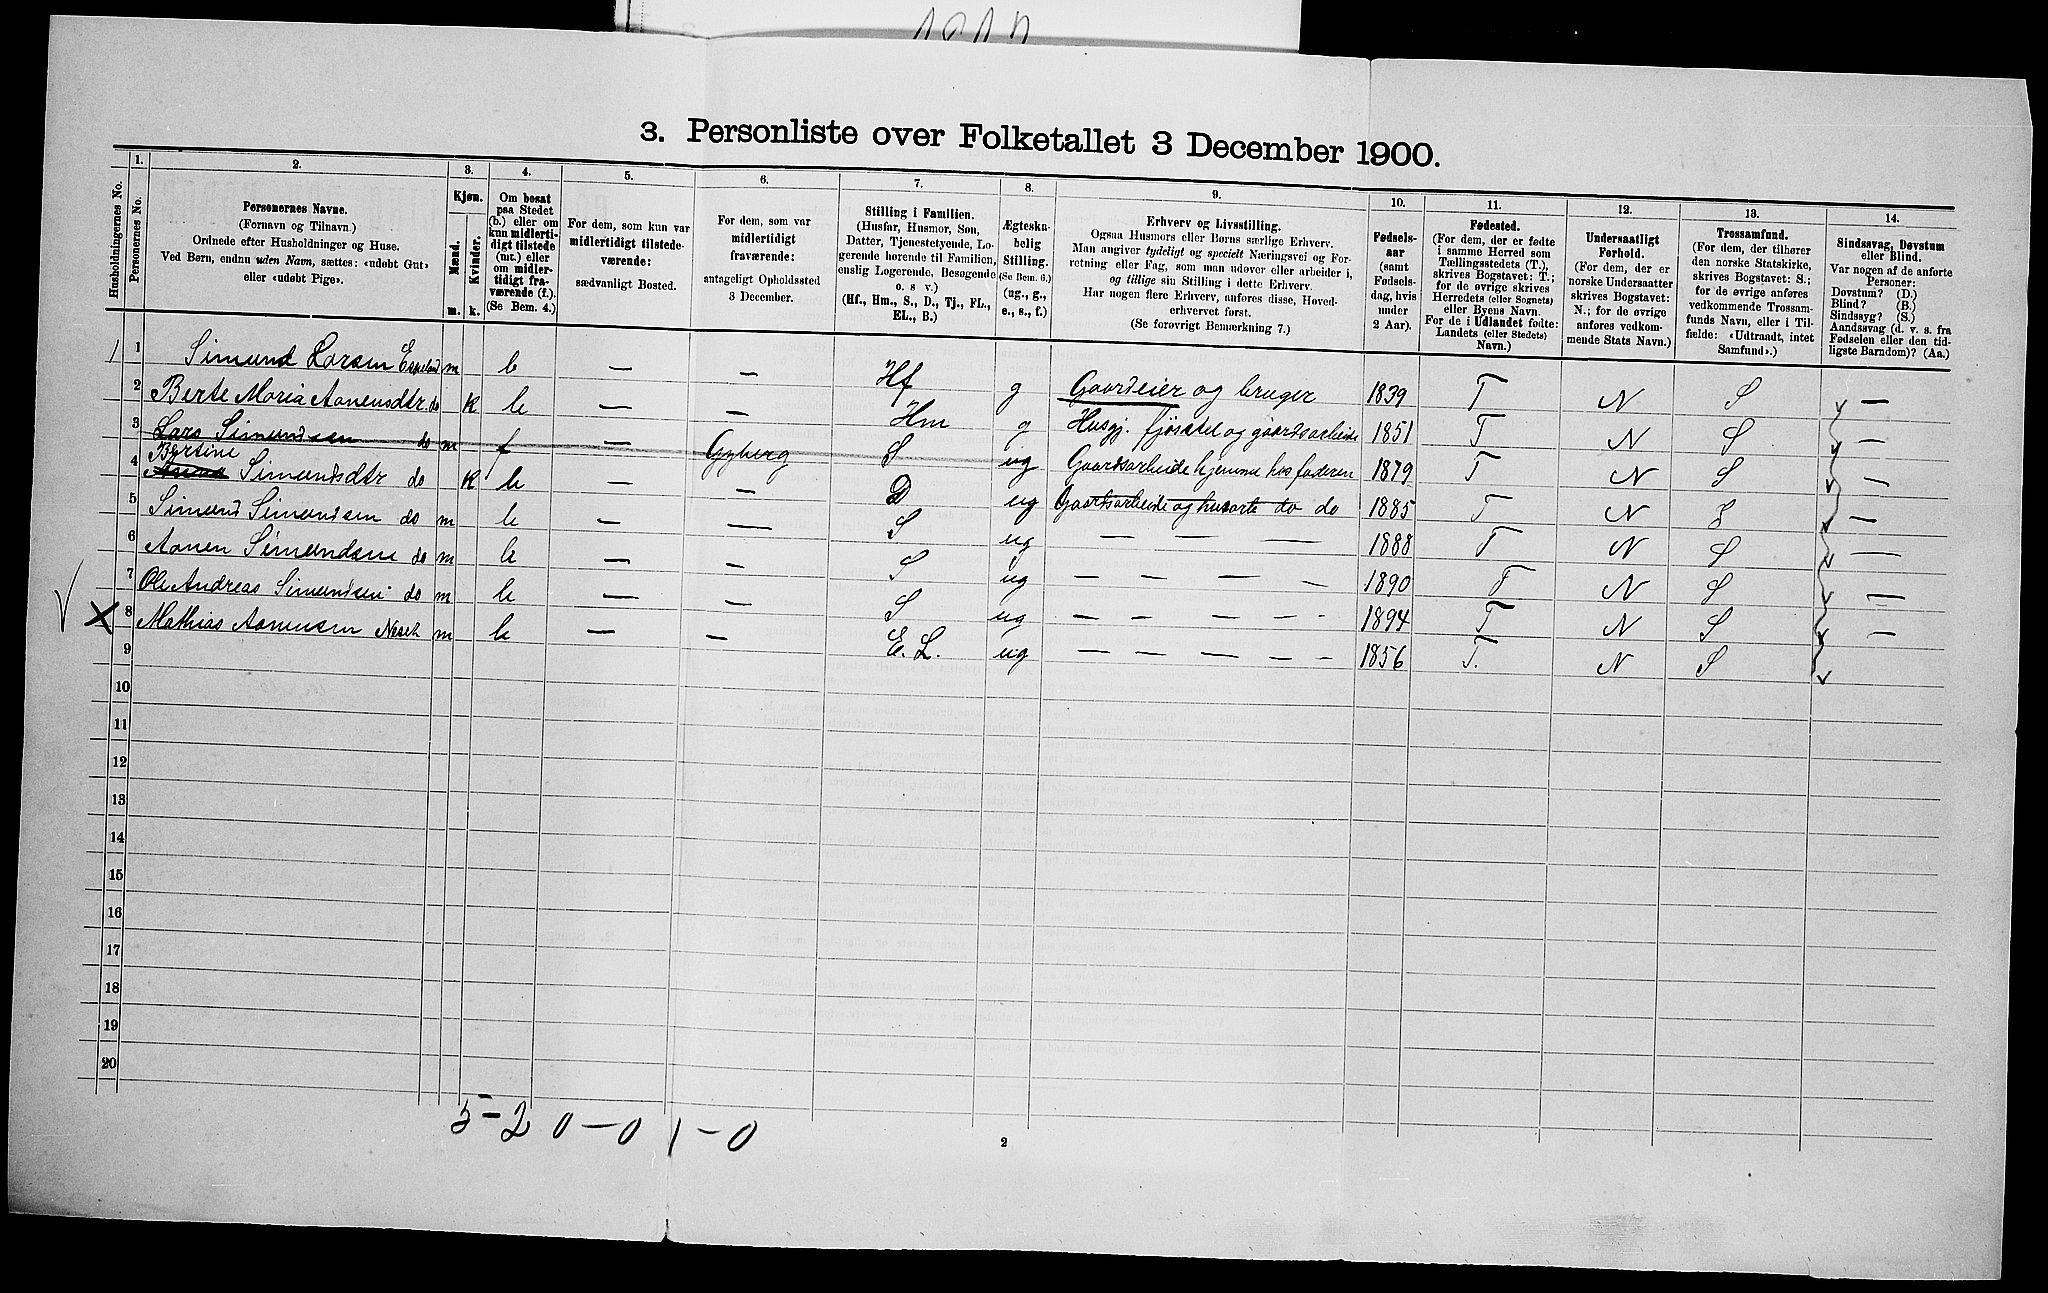 3. Personliste over Folketallet 3 December 1900.
Husholdningernes No.
1.
Personernes No.
2.
Personernes Navne.
(Fornavn og Tilnavn.)
Ordnede efter Husholdninger og Huse.
Ved Børn, endnu uden Navn, sættes: «udøbt Gut»
eller «udøbt Pige».
3.
Kjøn.
Mænd.
Kvinder.
m.
k.
4.
Om bosat
paa Stedet
(b.) eller om
kun midlerti-
digt tilstede
(mt.) eller
om midler-
tidigt fra-
værende (f.).
(Se Bem. 4.)
5.
For dem, som kun var
midlertidigt tilstede-
værende:
sædvanligt Bosted.
6.
For dem, som var
midlertidigt
fraværende:
antageligt Opholdssted
3 December.
7.
Stilling i Familien.
(Husfar, Husmor, Søn,
Datter, Tjenestetyende, Lo-
gerende hørende til Familien,
enslig Logerende, Besøgende
o. s v.)
(Hf., Hm., S., D., Tj., FL.,
EL., B.)
8.
Ægteska-
belig
Stilling.
(Se Bem. 6.)
(ug., g.,
e., s., f.)
9.
Erhverv og Livsstilling.
Ogsaa Husmors eller Børns særlige Erhverv.
Man angiver tydeligt og specielt Næringsvei og For-
retning eller Fag, som man udøver eller arbeider i,
og tillige sin Stilling i dette Erhverv.
Har nogen flere Erhverv, anføres disse, Hoved-
erhvervet først.
(Se forøvrigt Bemærkning 7.)
10.
Fødsels-
aar
(samt
Fødsels-
dag, hvis
under
2 Aar).
11.
Fødested.
(For dem, der er fødte
i samme Herred som
Tællingsstedets (T.),
skrives Bogstavet: T.;
for de øvrige skrives
Herredets (eller Sognets)
eller Byens Navn.
For de i Udlandet fødte:
Landets (eller Stedets)
Navn.)
12.
Undersaatligt
Forhold.
(For dem, der er
norske Undersaatter
skrives Bogstavet:
N.; for de øvrige
anføres vedkom-
mende Stats Navn.)
13.
Trossamfund.
(For dem, der tilhører
den norske Statskirke,
skrives Bogstavet: S.;
for de øvrige anføres
vedkommende Trossam-
funds Navn, eller i Til-
fælde: «Udtraadt, intet
Samfund».)
14.
Sindssvag, Døvstum
eller Blind.
Var nogen af de anførte
Personer:
Døvstum? (D.)
Blind? (B.)
Sindssyg? (S.)
Aandssvag (d. v. s. fra
Fødselen eller den tid-
ligste Barndom)? (Aa.)
1 1 Simund Larsen Espeland m b — — Hf g Gaardeier og bruger 1839 T N S —
2 Berte Maria Aanensdtr. do k b — — Hm g Husgj. fjøsstel og gaardsarbeide 1851 T N S —
3 Lars Simundsen do m f — Gyberg S ug Gaardsarbeide hjemme hos faderen 1879 T N S —
Bertine
4 Simundsdtr do k b — — D ug Gaardsarbeide og husarb. do do 1885 T N S —
5 Simund Simundsen do m b — — S ug — — — 1888 T N S —
6 Aanen Simundsen do m b — — S ug — — — — 1890 T N S —
7 Ole Andreas Simundsen do m b — — S ug — — — — 1894 T N S —
8 Mathias Aanensen m b — — E. L. ug — — — — — 1856 T. N S
9
10
11
12
13
14
15
16
17
18
19
20
5-2 0-0 1-0
2